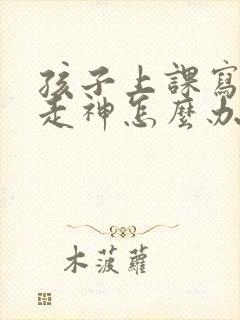 孩子上課寫
走神怎麼办
木菠蘿